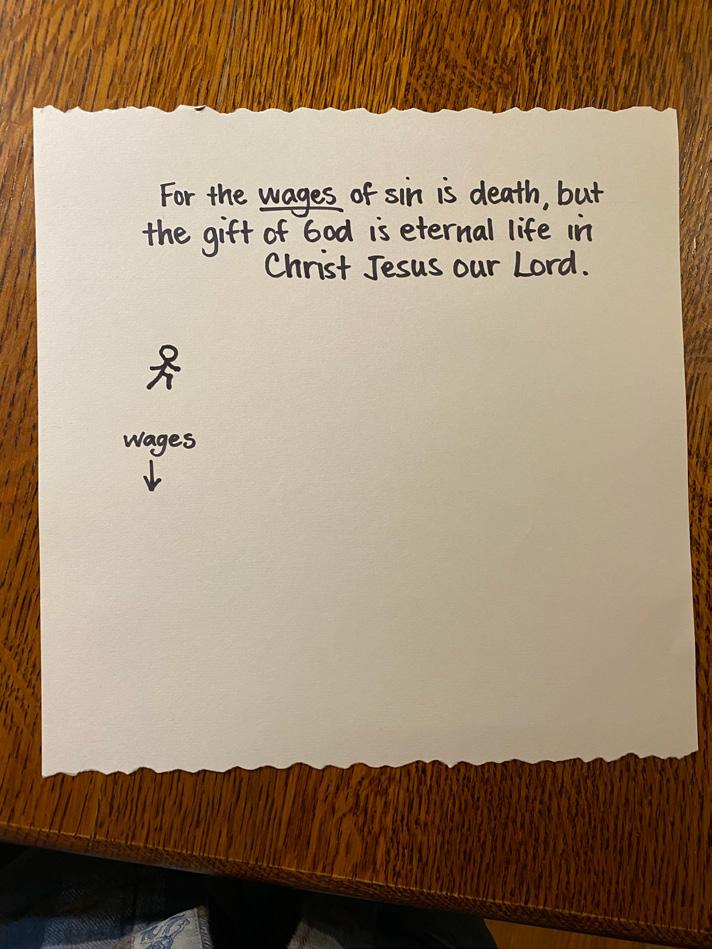 For the wages of sin is death, but
the gift of God is eternal life in
Christ Jesus our Lord.
wages